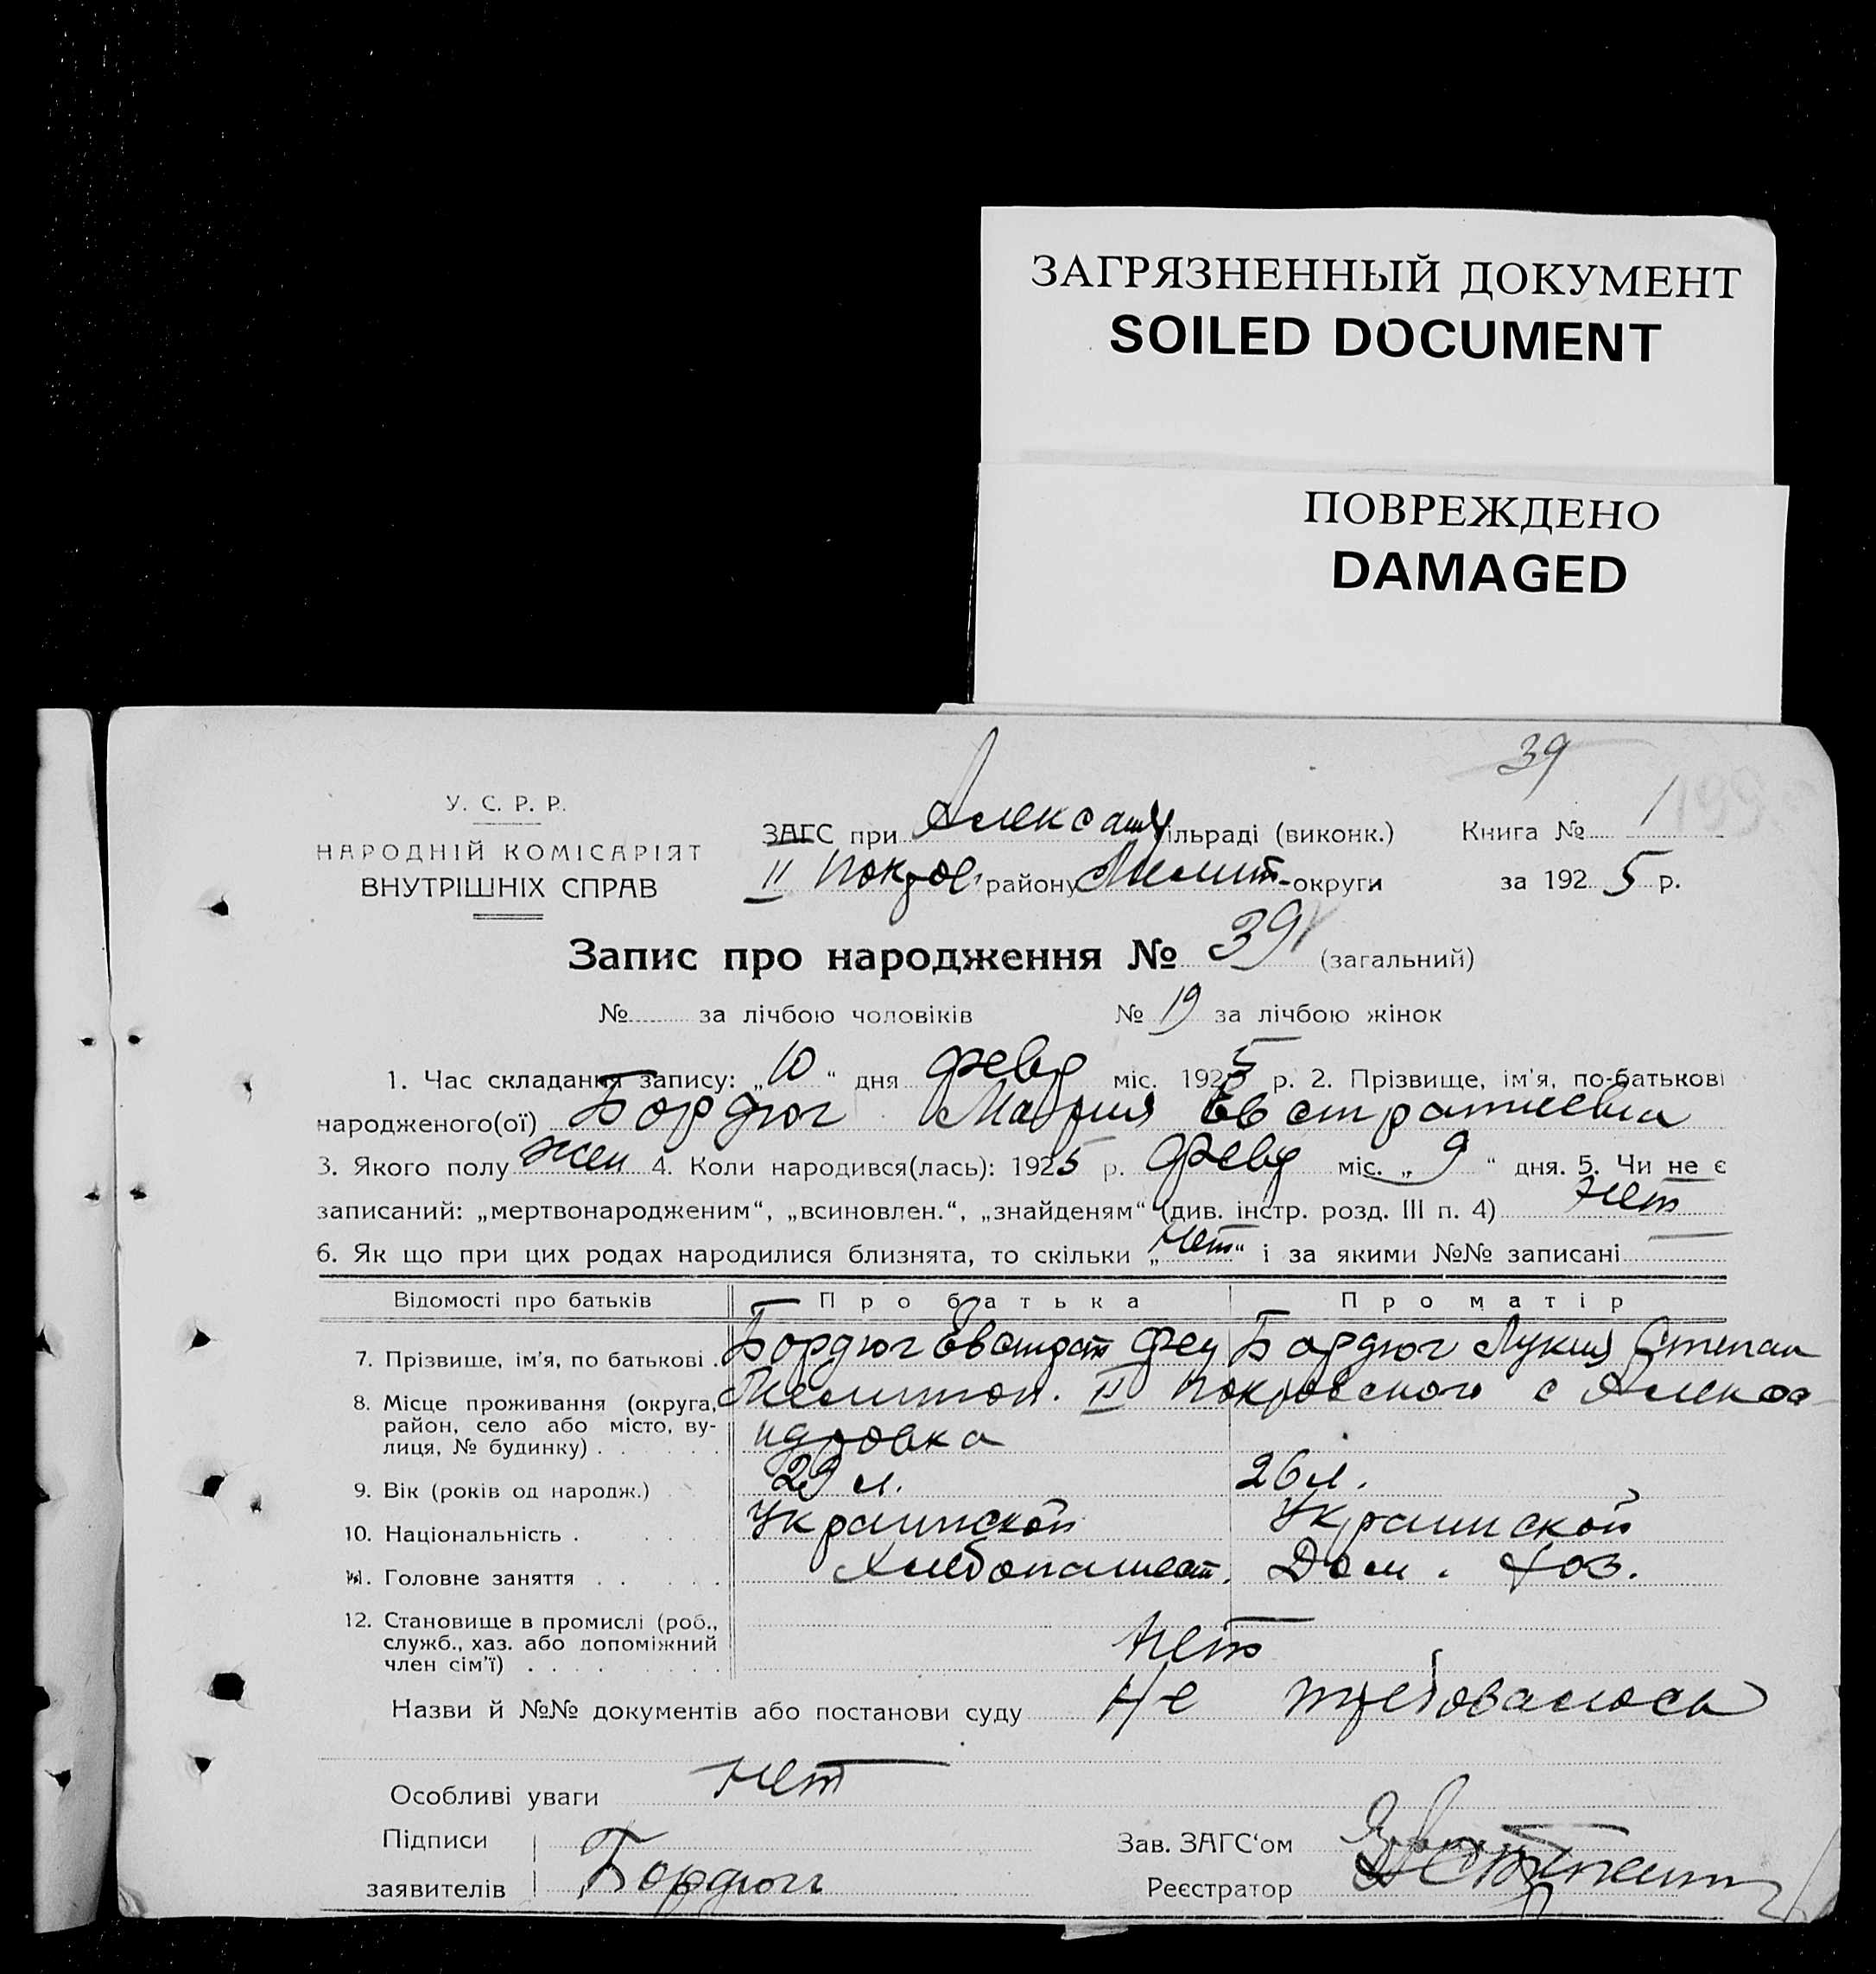 ЗАГРЯЗНЕННЫЙ ДОКУМЕНТ
SOILED DOCUMENT
ПОВРЕЖДЕНО
DAMAGED
39
У. С. Р. Р.
НАРОДНІЙ КОМІСАРІЯТ
ВНУТРІШНІХ СПРАВ
ЗАГС при Александ ільраді (виконк.) Книга № 1
II Покров. району Мелит-округи за 1925 р.
Запис про народження № 39 (загальний)
№ за лічбою чоловіків № 19 за лічбою жінок
1. Час складання запису: „10“ дня февр міс. 1925 р. 2. Прізвище, ім'я, по-батькові
народженого(ої) Бордюг Мария Евстратиевна
3. Якого полу жен 4. Коли народився(лась): 1925 р. февр міс. „9“ дня. 5. Чи не є
записаний: „мертвонародженим“, „всиновлен.“, „знайденям“ (див. інстр. розд. III п. 4) нет
6. Як що при цих родах народилися близнята, то скільки „нет“ і за якими №№ записані —
Відомості про батьків Про батька Про матір
7. Прізвище, ім'я, по батькові Бордюг Евстрат Фед Бордюг Лукия Степан
8. Місце проживання (округа, район, село або місто, вулиця, № будинку) Мелитоп. II Покровского с Алекса-
ндровка
9. Вік (років од народж.) 29 л. 26 л.
10. Національність Украинской Украинской
11. Головне заняття Хлебопашест. Дом. хоз.
12. Становище в промислі (роб., служб., хаз. або допоміжний член сім'ї) нет
Назви й №№ документів або постанови суду Не требовалось
Особливі уваги нет
Підписи
заявителів Бордюг
Зав. ЗАГС'ом
Реєстратор